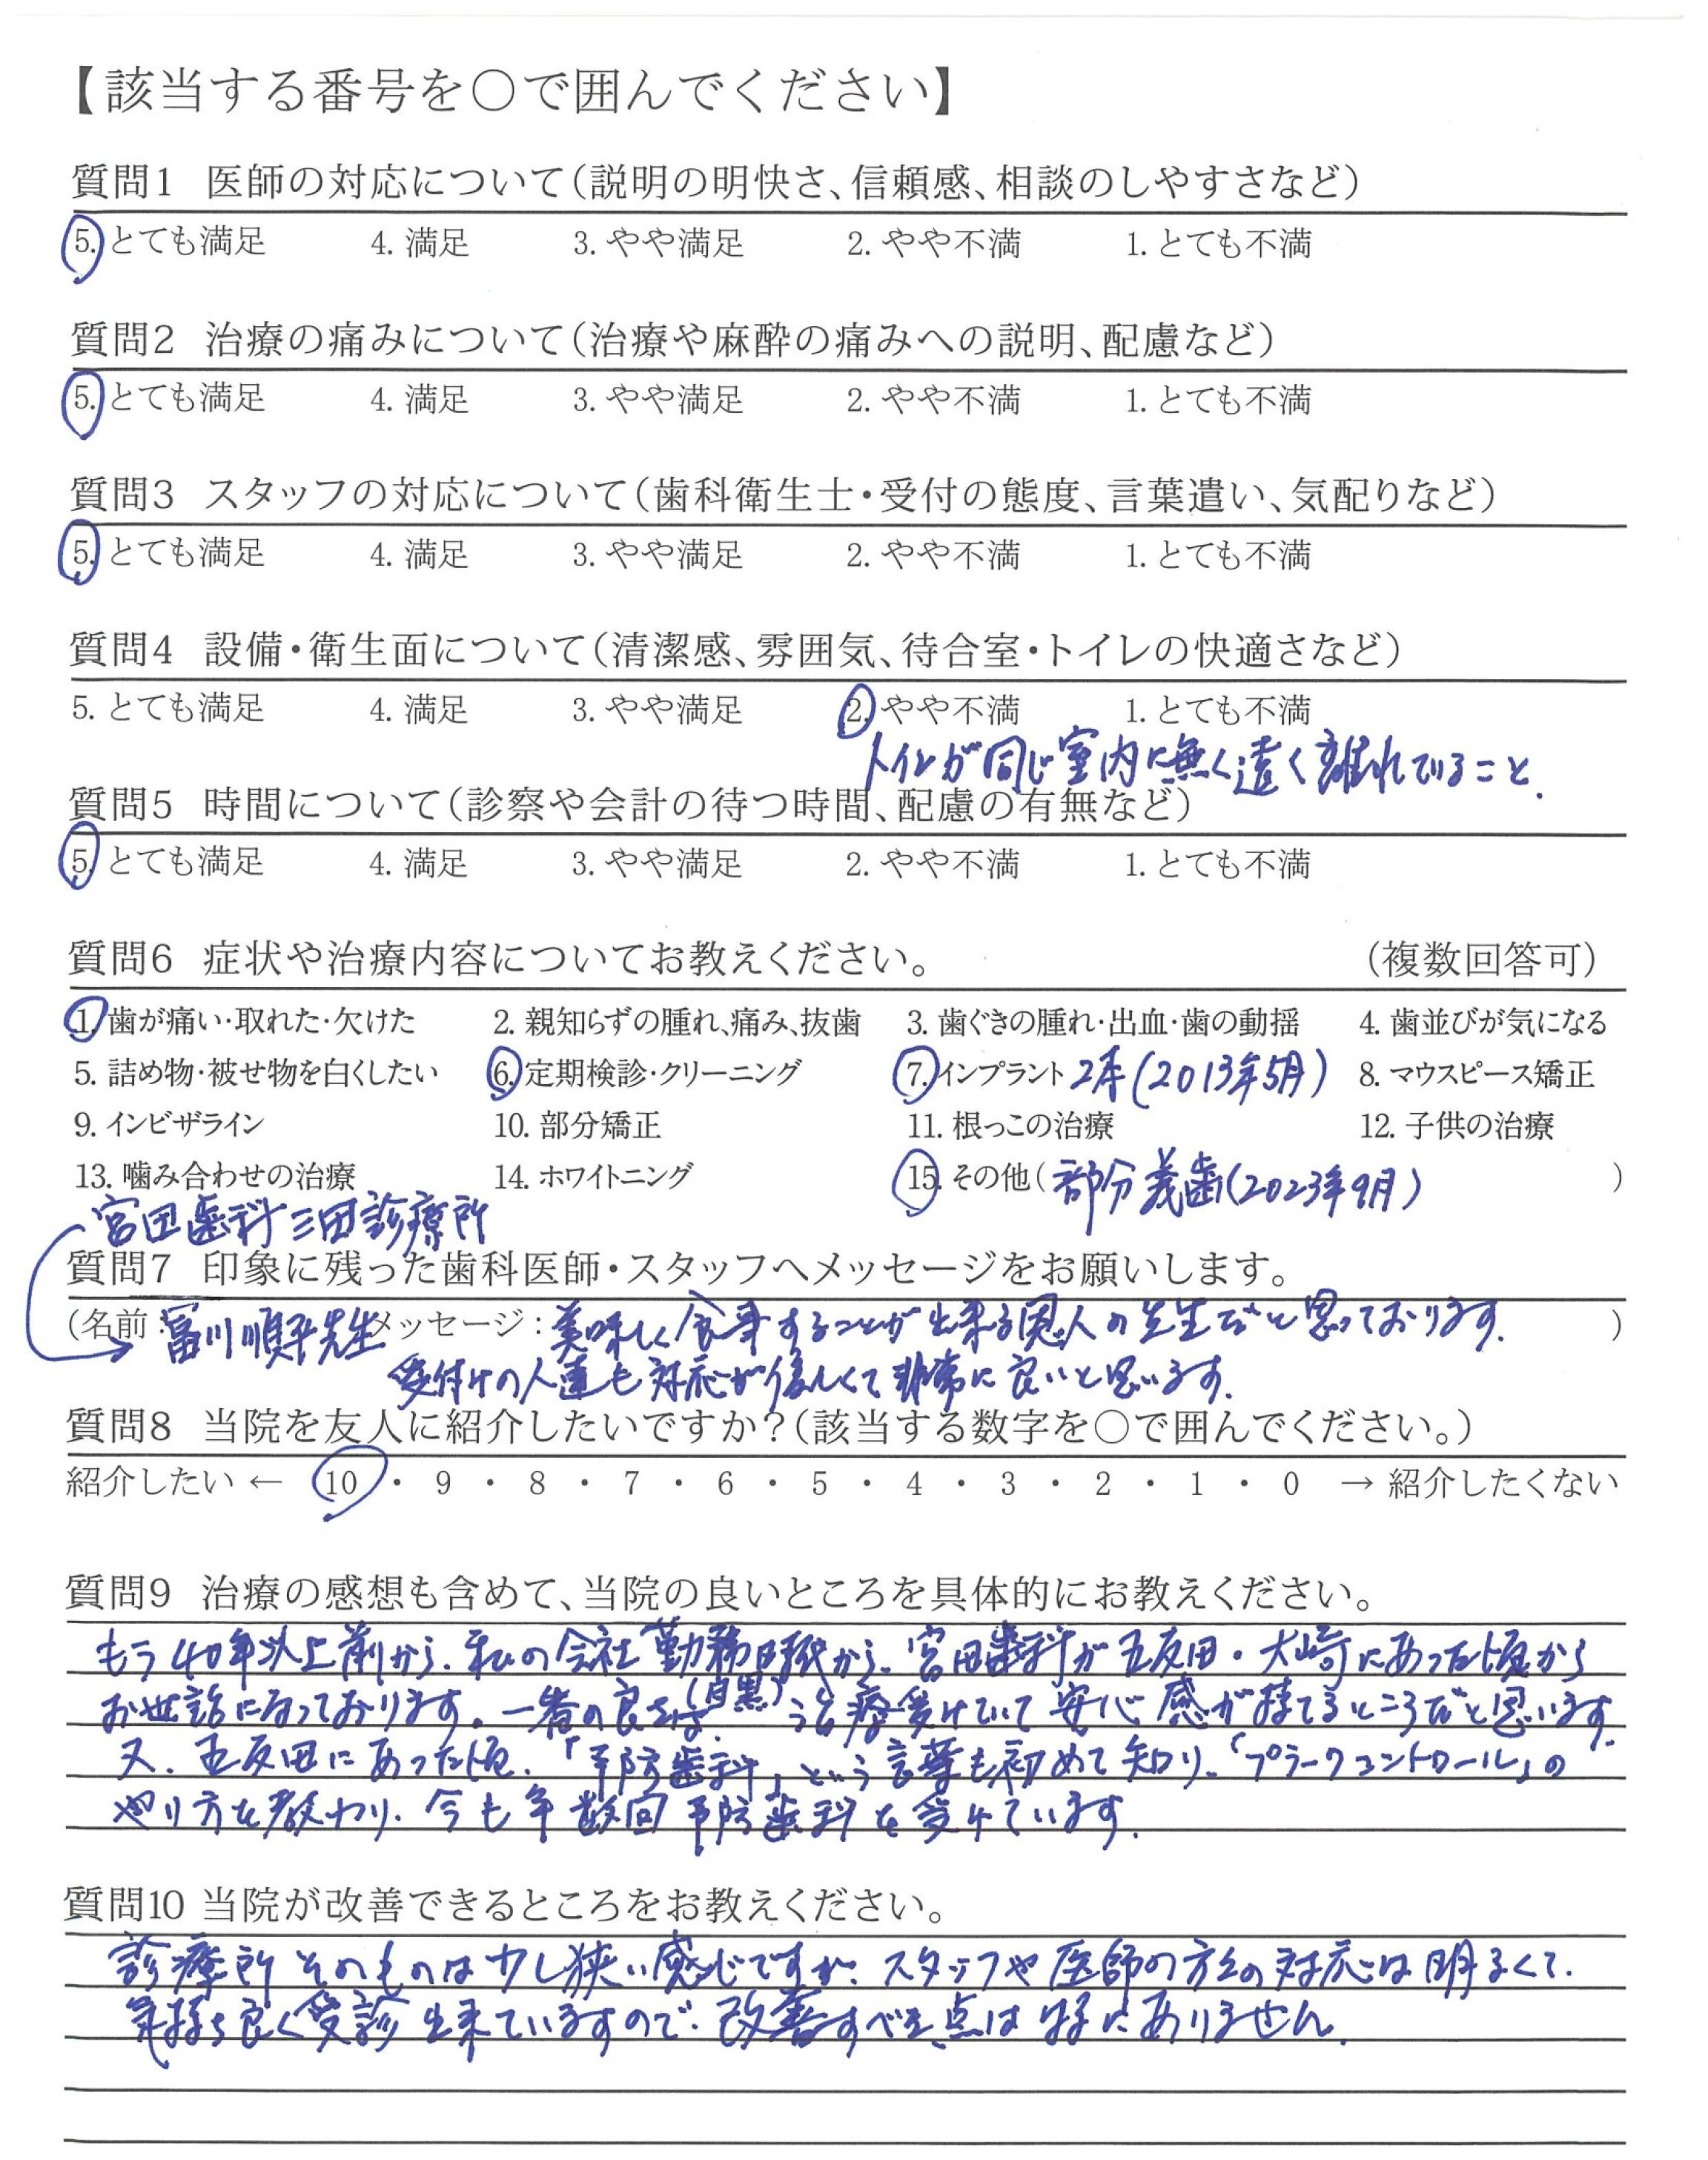 【該当する番号を〇で囲んでください】
質問1 医師の対応について(説明の明快さ、信頼感、相談のしやすさなど)
5. とても満足 4. 満足 3. やや満足 2. やや不満 1. とても不満
質問2 治療の痛みについて(治療や麻酔の痛みへの説明、配慮など)
5. とても満足 4. 満足 3. やや満足 2. やや不満 1. とても不満
質問3 スタッフの対応について(歯科衛生士・受付の態度、言葉遣い、気配りなど)
5. とても満足 4. 満足 3. やや満足 2. やや不満 1. とても不満
質問4 設備・衛生面について(清潔感、雰囲気、待合室・トイレの快適さなど)
5. とても満足 4. 満足 3. やや満足 2. やや不満 1. とても不満
トイレが同じ室内に無く遠く離れていること.
質問5 時間について(診察や会計の待つ時間、配慮の有無など)
5. とても満足 4. 満足 3. やや満足 2. やや不満 1. とても不満
質問6 症状や治療内容についてお教えください。 (複数回答可)
1. 歯が痛い・取れた・欠けた 2. 親知らずの腫れ、痛み、抜歯 3. 歯ぐきの腫れ・出血・歯の動揺 4. 歯並びが気になる
5. 詰め物・被せ物を白くしたい 6. 定期検診・クリーニング 7. インプラント 2本(2013年5月) 8. マウスピース矯正
9. インビザライン 10. 部分矯正 11. 根っこの治療 12. 子供の治療
13. 噛み合わせの治療 14. ホワイトニング 15. その他(部分義歯(2023年9月) )
宮田歯科三田診療所
質問7 印象に残った歯科医師・スタッフへメッセージをお願いします。
(名前:冨川順平先生 メッセージ:美味しく食事することが出来る恩人の先生だと思っております. )
受付けの人達も対応が優しくて非常に良いと思います.
質問8 当院を友人に紹介したいですか?(該当する数字を〇で囲んでください。)
紹介したい ← 10 ・ 9 ・ 8 ・ 7 ・ 6 ・ 5 ・ 4 ・ 3 ・ 2 ・ 1 ・ 0 → 紹介したくない
質問9 治療の感想も含めて、当院の良いところを具体的にお教えください。
もう40年以上前から.私の会社勤務時代から.宮田歯科が五反田・大崎にあった頃から
お世話になっております。一番の良さは.治療受けていて安心感が持てるところだと思います.
又.五反田にあった頃.「予防歯科」という言葉も初めて知り.「プラークコントロール」の
やり方を教わり.今も年数回予防歯科を受けています.
質問10 当院が改善できるところをお教えください。
診療所そのものは少し狭い感じですが.スタッフや医師の方々の対応は明るくて.
気持ち良く受診出来ていますので.改善すべき点は特にありません.